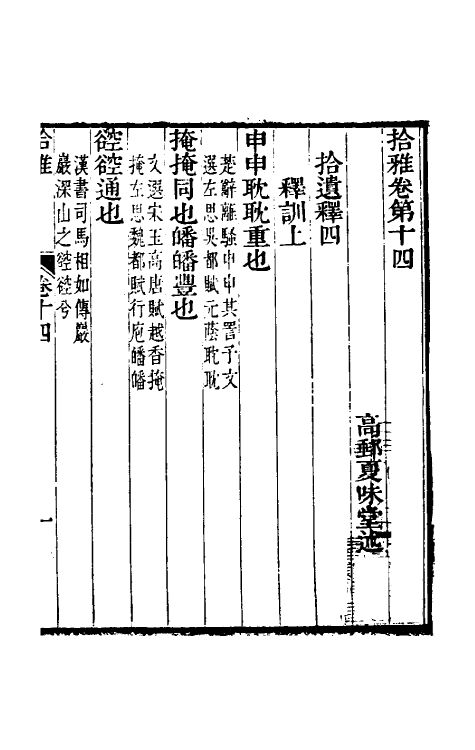 拾雅卷第十四
高郵夏味堂述
拾遺釋四
釋訓上
申申耽耽重也
楚辭離騷申申其詈予文
選左思吳都賦元蔭耽耽
掩掩同也皤皤豐也
文選宋玉高唐賦越香掩
掩左思魏都賦行庖皤皤
谾谾通也
漢書司馬相如傳巖
巖深山之谾谾兮
拾雅
卷十四
一